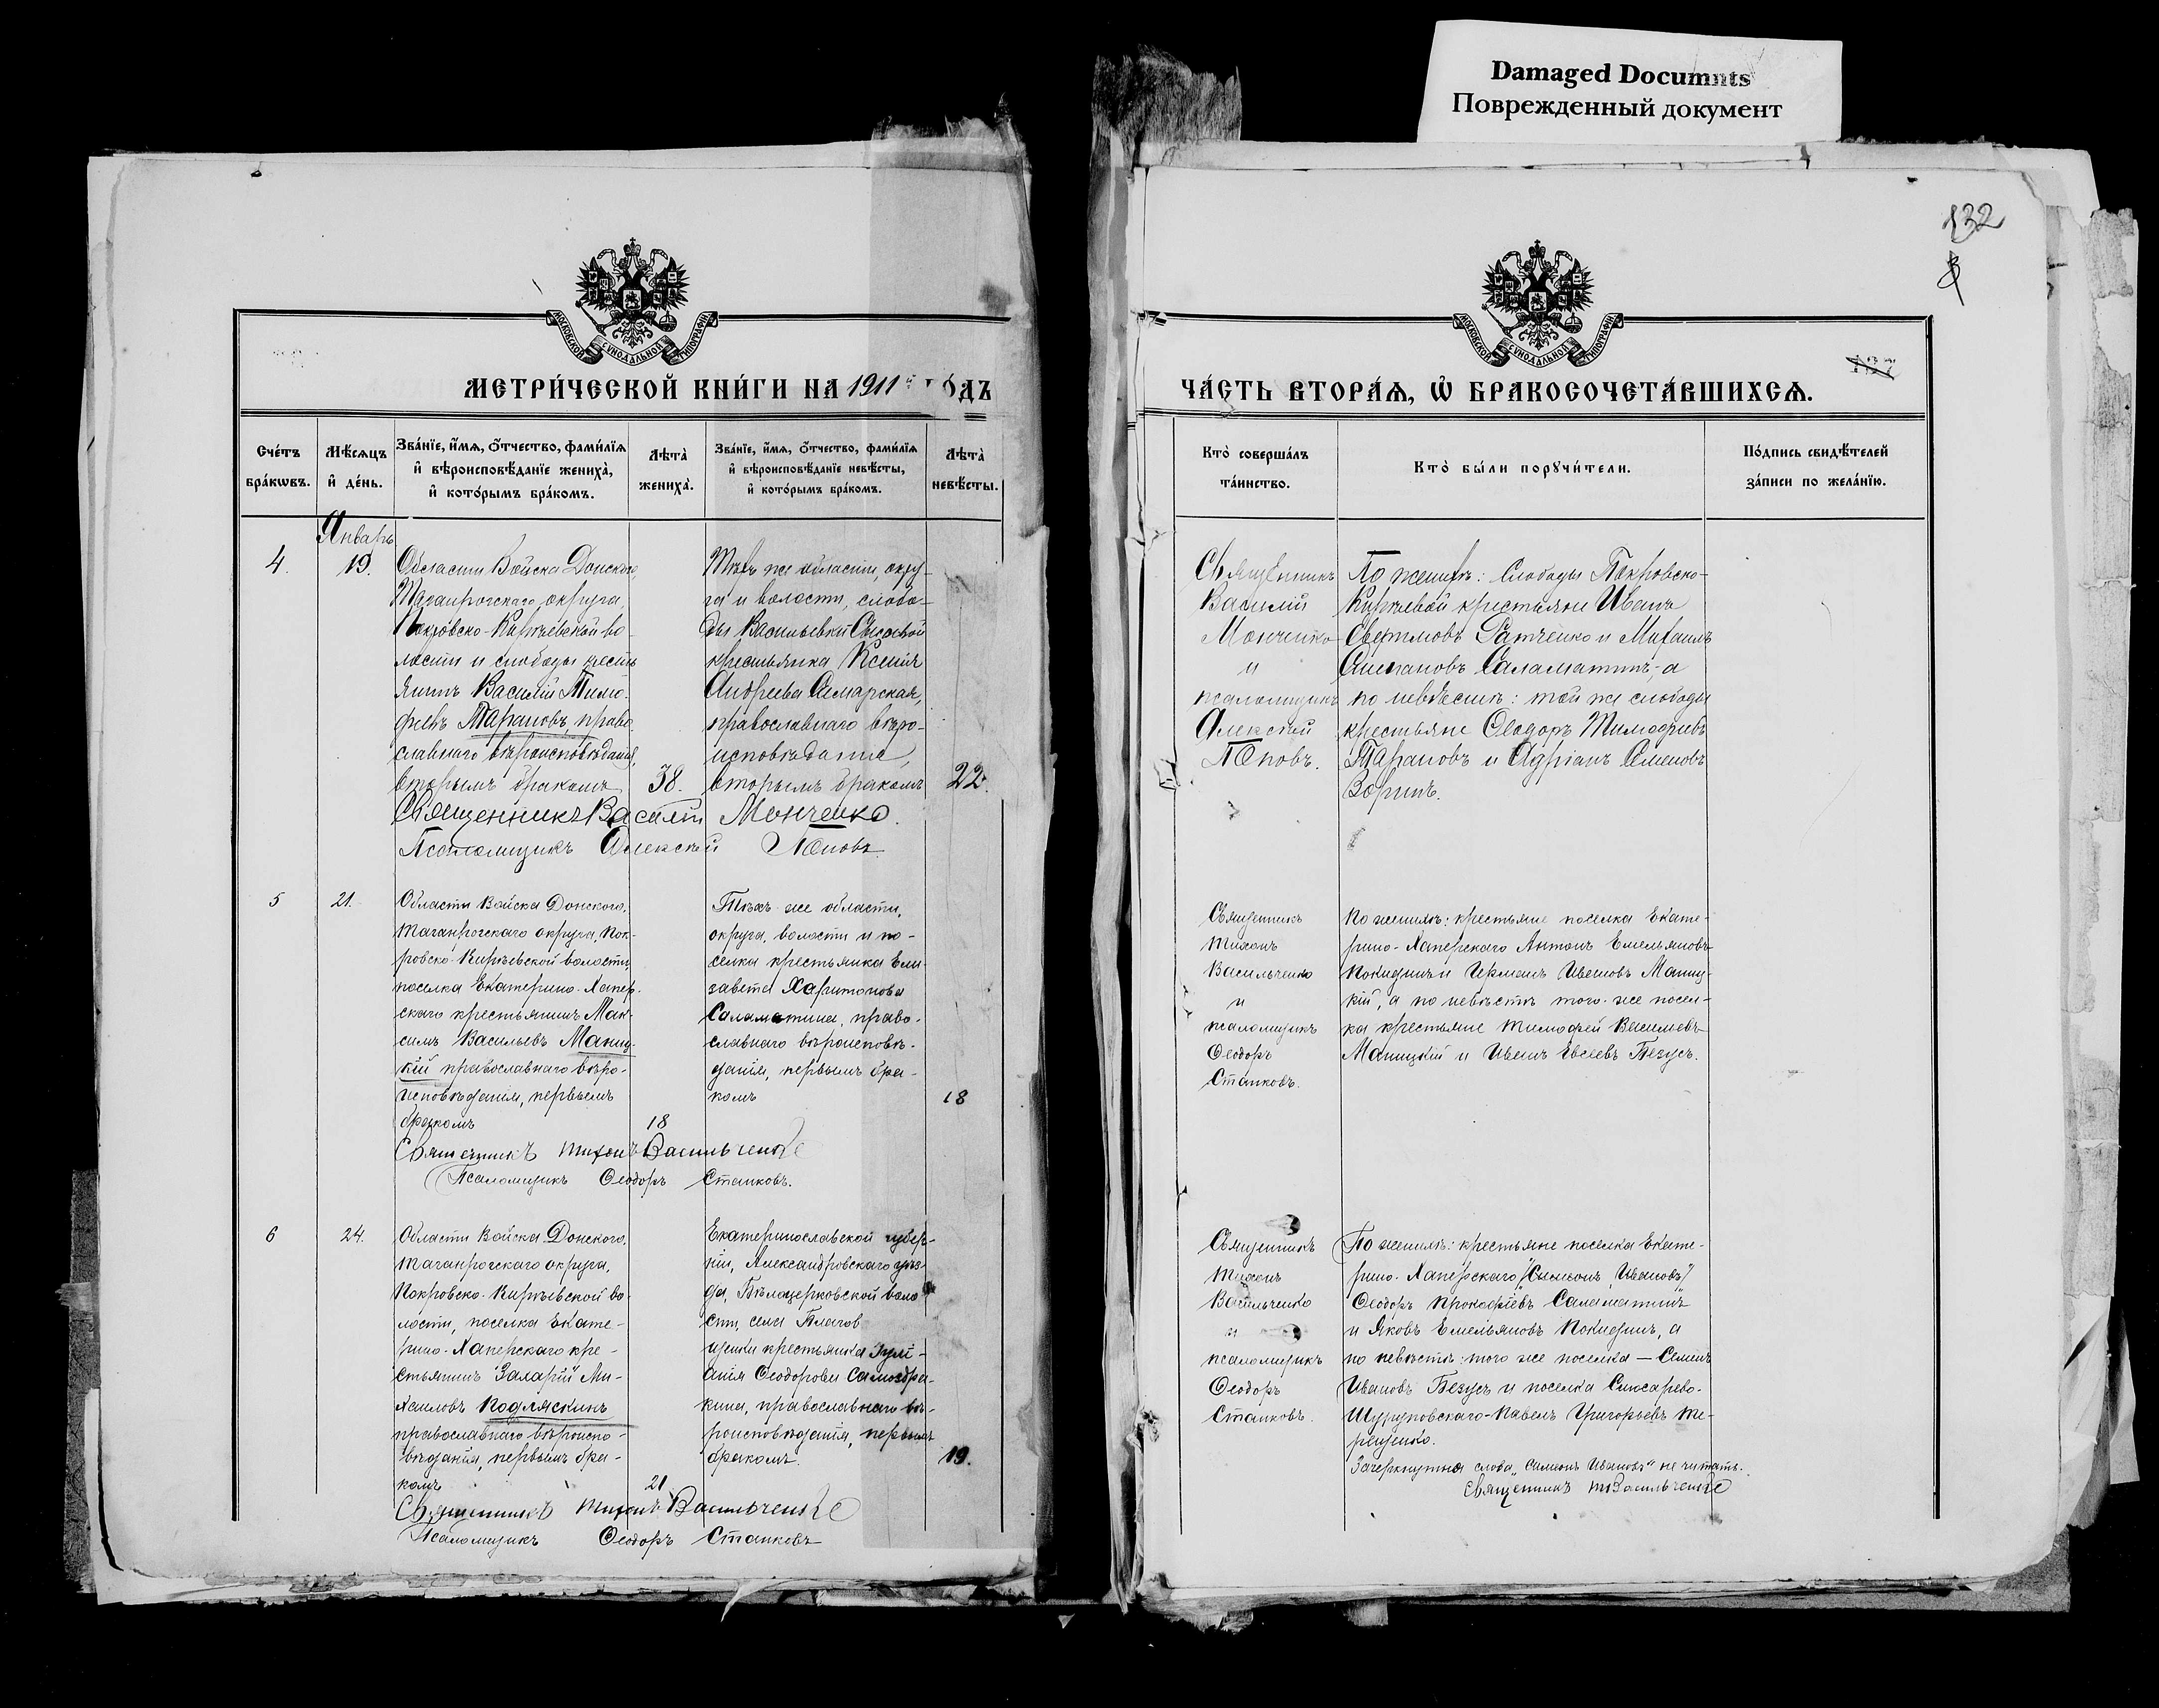 Damaged Documnts
Поврежденный документ
132
МОСКОВСКОЙ СѴНОДАЛЬНОЙ ТИПОГРАФІИ
МЕТРИ́ЧЕСКОЙ КНИ́ГИ НА 1911й ГО́ДЪ
Сче́тъ бра́кѡвъ.
Мѣ́сѧцъ и҆ де́нь.
Зва́нїе, и҆́мѧ, ѻ҆́тчество, фами́лїѧ и҆ вѣроисповѣ́данїе жениха̀, и҆ кото́рымъ бра́комъ.
Лѣта̀ жениха̀.
Зва́нїе, и҆́мѧ, ѻ҆́тчество, фами́лїѧ и҆ вѣроисповѣ́данїе невѣ́сты, и҆ кото́рымъ бра́комъ.
Лѣта̀ невѣ́сты.
Январь
4.
19.
Области Войска Донского,
Таганрогскаго округа,
Покровско-Кирѣевской во-
лости и слободы кресть
янинъ Василій Тимо-
феевъ Тарановъ, право
славнаго вѣроисповѣданія,
вторымъ бракомъ
38.
Тѣхъ же области, окру-
га и волости, слобо-
ды Васильевки Сысоевой
крестьянка Ксенія
Андреева Самарская,
православнаго вѣро-
исповѣданія,
вторымъ бракомъ
22.
Священникъ Василій Монченко.
Псаломщикъ Алексѣй Поповъ.
5
21.
Области Войска Донского,
Таганрогскаго округа, Пок-
ровско-Кирѣевской волости,
поселка Екатерино-Хапер-
скаго крестьянинъ Мак-
симъ Васильевъ Маниц-
кій православнаго вѣро-
исповѣданія, первымъ
бракомъ
18
Тѣхъ же области,
округа, волости и по-
селка крестьянка Ели-
завета Харитонова
Саламатина, право-
славнаго вѣроисповѣ-
данія, первымъ бра-
комъ
18
Священникъ Тихонъ Васильченко
Псаломщикъ Ѳеодоръ Станковъ.
6
24.
Области Войска Донского,
Таганрогскаго округа,
Покровско-Кирѣевской во-
лости, поселка Екате-
рино-Хаперскаго кре-
стьянинъ Захарій Ми-
хаиловъ Подляскинъ
православнаго вѣроиспо-
вѣданія, первымъ бра-
комъ
21
Екатеринославской губер-
ніи, Александровскаго уѣз-
да, Бѣлоцерковской воло
сти, села Благов
ѣщенки крестьянка Іулі-
анія Ѳеодорова Самоздра-
кина, православнаго вѣ-
роисповѣданія, первымъ
бракомъ.
19.
Священникъ Тихонъ Васильченко
Псаломщикъ Ѳеодоръ Станковъ
МОСКОВСКОЙ СѴНОДАЛЬНОЙ ТИПОГРАФІИ
127
ЧА́СТЬ ВТОРА́Ѧ, Ѡ҆ БРАКОСОЧЕТА́ВШИХСѦ.
Кто̀ соверша́лъ та́инство.
Кто̀ бы́ли порꙋчи́тели.
По́дпись свидѣ́телей за́писи по жела́нїю.
Священникъ
Василій
Монченко
и
псаломщикъ
Алексѣй
Поповъ.
По женихѣ: Слободы Покровско-
Кирѣевой крестьяне Иванъ
Евфимовъ Ратченко и Михаилъ
Степановъ Саламатинъ, а
по невѣстѣ: той же слободы
крестьяне Ѳеодоръ Тимофеевъ
Тарановъ и Адріанъ Семеновъ
Зоринъ.
Священникъ
Тихонъ
Васильченко
и
псаломщикъ
Ѳеодоръ
Станковъ.
По женихѣ: крестьяне поселка Екате-
рино-Хаперскаго Антонъ Емельяновъ
Покидинъ и Германъ Ивановъ Маниц-
кій, а по невѣстѣ того же посел-
ка крестьяне Тимофей Васильевъ
Маницкій и Иванъ Евсеевъ Безусъ.
Священникъ
Тихонъ
Васильченко
и
псаломщикъ
Ѳеодоръ
Станковъ.
По женихѣ: крестьяне поселка Екате-
рино-Хаперскаго (Симеонъ Ивановъ)
Ѳеодоръ Прокофіевъ Саламатинъ
и Яковъ Емельяновъ Покидинъ, а
по невѣстѣ: того же поселка — Семенъ
Ивановъ Безусъ и поселка Слюсарево-
Шуруповскаго-Павелъ Григорьевъ Те-
рещенко.
Зачеркнутыя слова „Симеонъ Ивановъ" не читать.
Священникъ Т Васильченко